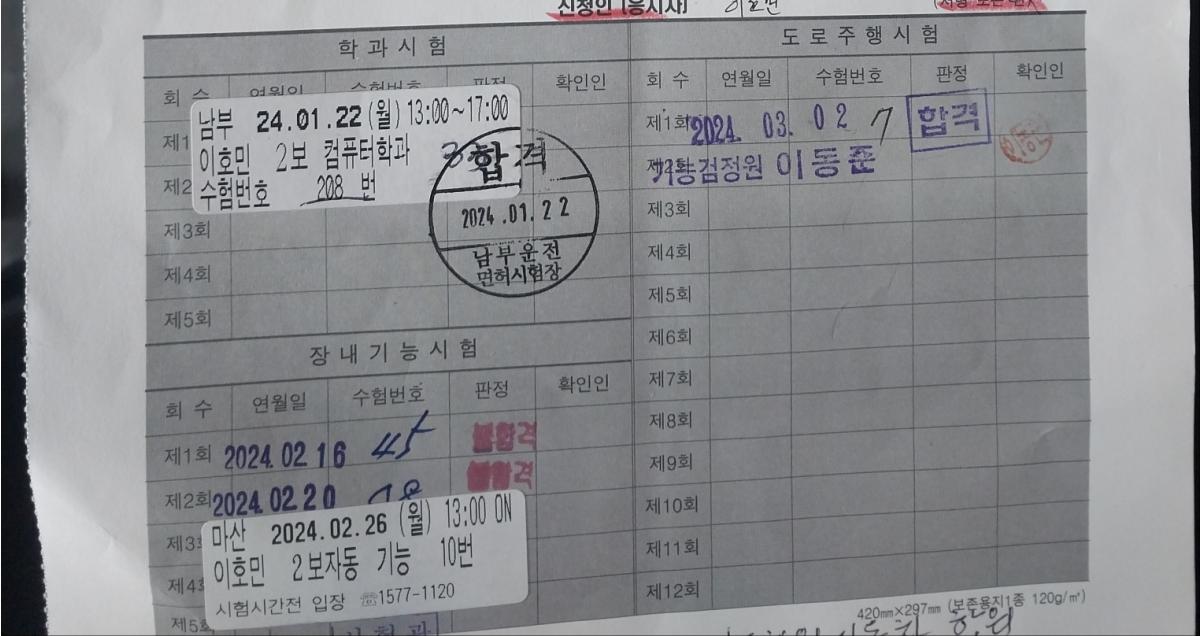 신청인 (응시자) 이호민
학 과 시 험
회 수 연월일 수험번호 판정 확인인
남부 24.01.22 (월) 13:00~17:00
이호민 2보 컴퓨터학과
수험번호 208 번
제1
제2
제3회
제4회
제5회
합격
2024.01.22
남부운전
면허시험장
장 내 기 능 시 험
회 수 연월일 수험번호 판정 확인인
제1회 2024.02.16 45 불합격
제2회 2024.02.20 불합격
제3회
마산 2024.02.26 (월) 13:00 ON
이호민 2보자동 기능 10번
시험시간전 입장 ☏1577-1120
제4
제5회
도 로 주 행 시 험
회 수 연월일 수험번호 판정 확인인
제1회 2024. 03. 02 7 합격
검정원 이동준
제3회
제4회
제5회
제6회
제7회
제8회
제9회
제10회
제11회
제12회
420㎜×297㎜ (보존용지1종 120g/㎡)